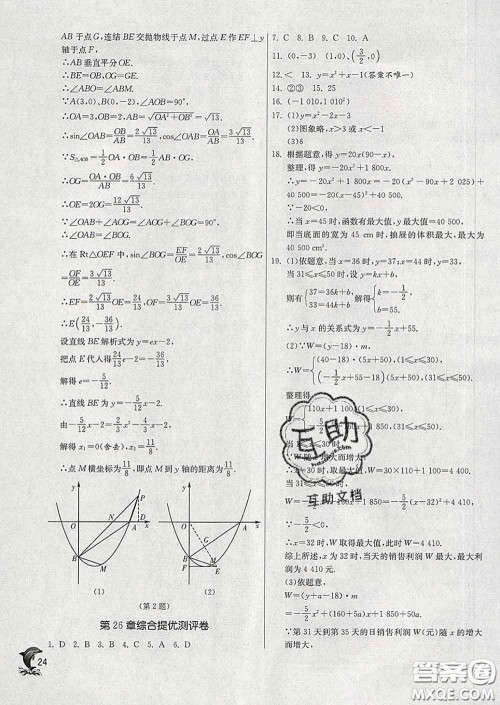 AB 于点 G,连结 BE 交抛物线于点 M,过点 E 作 EF⊥y
轴于点 F,
∴AB 垂直平分 OE.
∴BE=OB,OG=GE.
∴∠ABO=∠ABM.
∵A(3,0),B(0,-2),∠AOB=90°,
∴OA=3,OB=2,AB=√(OA²+OB²)=√13.
∴sin∠OAB=OB/AB=2√13/13,cos∠OAB=OA/AB=3√13/13.
∵S△AOB=1/2 AB·OG=1/2 OA·OB,
∴OG=OA·OB/AB=6√13/13.
∴OE=2OG=12√13/13.
∵∠OAB+∠AOG=∠AOG+∠BOG=90°,
∴∠OAB=∠BOG.
∴在 Rt△OEF 中,sin∠BOG=EF/OE=2√13/13,cos∠BOG
=OF/OE=3√13/13.
∴EF=2√13/13 OE=24/13,OF=3√13/13 OE=36/13.
∴E(24/13,-36/13).
设直线 BE 解析式为 y=ex-2.
把点 E 代入得 24/13 e-2=-36/13,
解得 e=-5/12.
∴直线 BE 为 y=-5/12 x-2.
由 -5/12 x-2=2/3 x²-4/3 x-2,
解得 x₁=0(舍去),x₂=11/8.
∴点 M 横坐标为 11/8,即点 M 到 y 轴的距离为 11/8.
y P N O D A x B M
(1)
y O A x G B M F E
(2)
(第 2 题)
第 26 章综合提优测评卷
1. D 2. B 3. D 4. C 5. A 6. D
24
7. C 8. A 9. B 10. A
11. (0,-3) (1,0),(3/2,0)
12. < 13. y=x²+x-1(答案不唯一)
14. ②③ 15. 25
16. (-1 010,1 010²)
17. (1)y=x²-2x-3
(2)图象略,x>3 或 x<-1
(3)6
18. 根据题意,得 y=20x(90-x),
整理,得 y=-20x²+1 800x.
∴y=-20x²+1 800x=-20(x²-90x+2 025)+
40 500=-20(x-45)²+40 500.
∵-20<0,
∴当 x=45 时,函数有最大值,y最大值=40 500,
即当底面的宽为 45 cm时,抽屉的体积最大,最大为
40 500 cm³.
19. (1)依题意,当 x=36 时,y=37;x=44 时,y=33,
当 31≤x≤50 时,设 y=kx+b,
则有 {37=36k+b, 33=44k+b, 解得 {k=-1/2, b=55.
∴y 与 x 的关系式为 y=-1/2 x+55.
(2)∵W=(y-18)·m,
∴W={(40-18)·(5x+50),(1≤x≤30), (-1/2 x+55-18)(5x+50),(31≤x≤50).
整理得,
W={110x+1 100(1≤x≤30), -5/2 x²+160x+1 850,(31≤x≤50).
互助
互助文档
∵-5/2<0,
∴x=32 时,W 取得最大值,W=4 410.
综上所述,x 为 32 时,当天的销售利润 W 最大,最大利
润为 4 410 元.
(3)依题意,
W=(y+a-18)·m
∵第 31 天到第 35 天的日销售利润 W(元)随 x 的增大
而增大,
答案圈
MXQE.COM